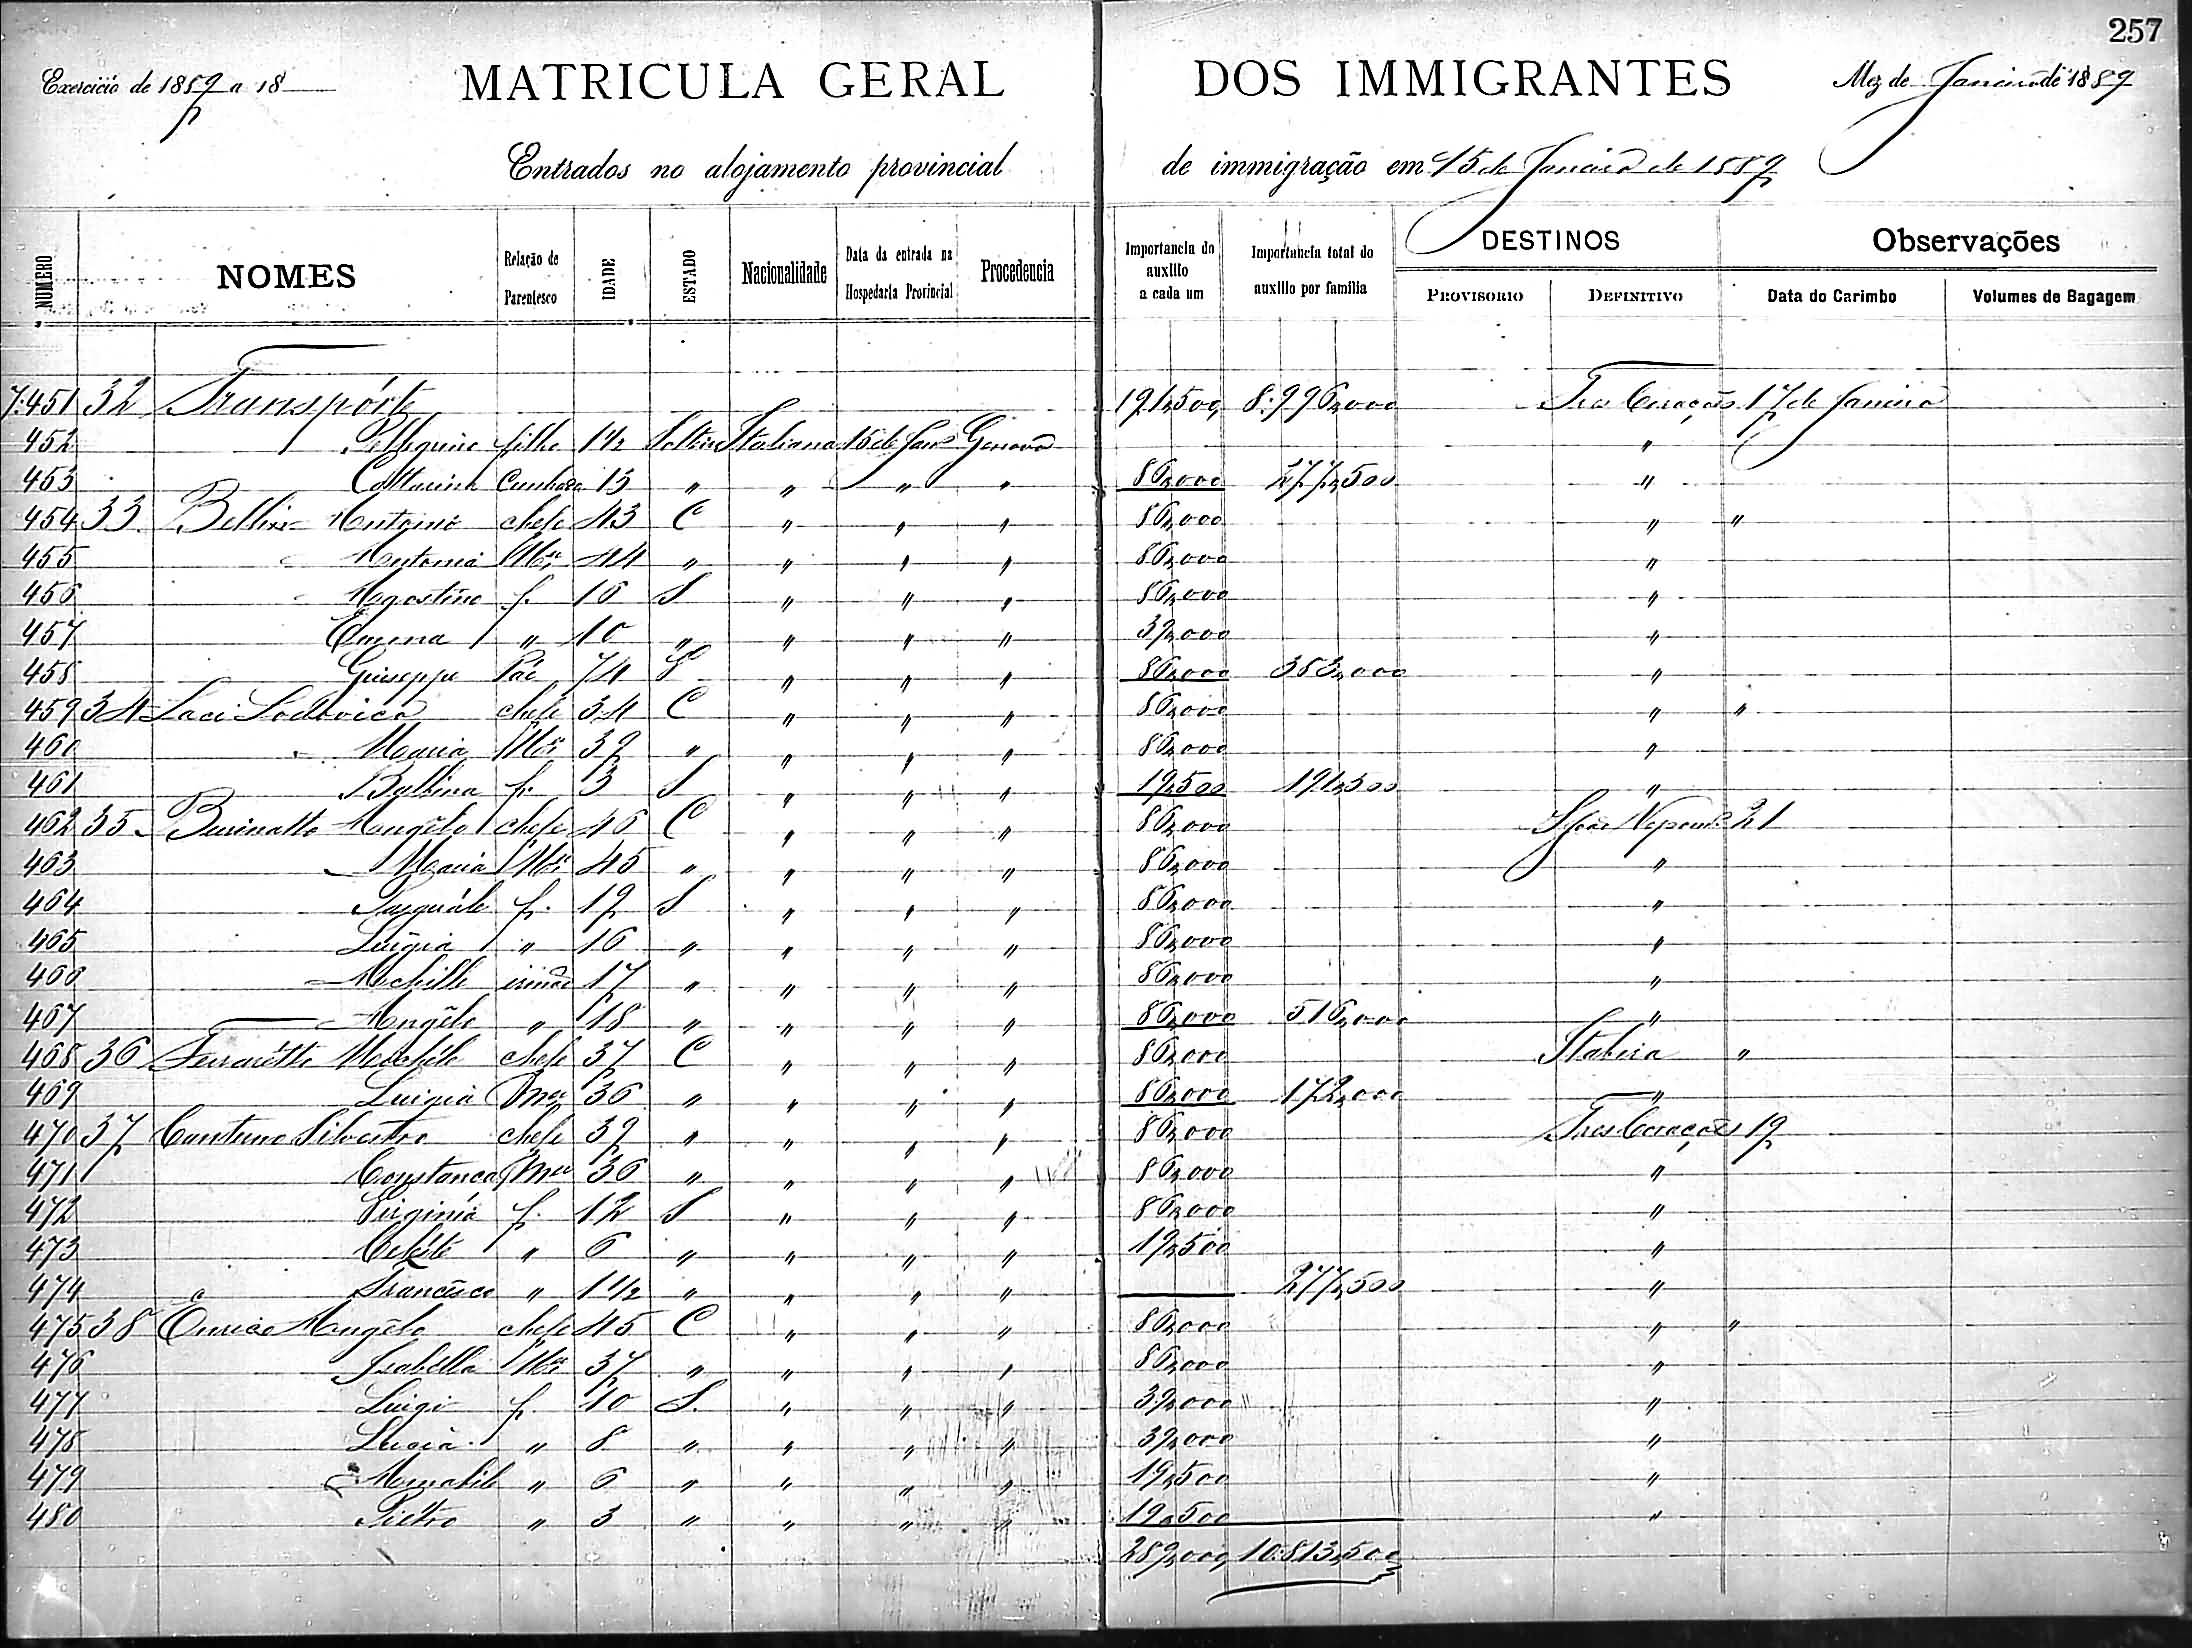 257
Exercicio de 1889 a 18
MATRICULA GERAL DOS IMMIGRANTES
Mez de Janeiro de 1889
Entrados no alojamento provincial de immigração em 15 de Janeiro de 1889
NUMERO NOMES Relação de Parentesco IDADE ESTADO Nacionalidade Data da entrada na Hospedaria Provincial Procedencia Importancia do auxilio a cada um Importancia total do auxilio por familia DESTINOS PROVISORIO DEFINITIVO Observações Data do Carimbo Volumes de Bagagem
7.451 32 Transpórte 191,500 8:996,000 Tres Corações 17 de Janeiro
452 Pellegrino filho 1 1/2 Italiana 15 de Janº Genova " "
453 Cattarina Cunhada 13 " " " " 86,000 277,500 "
454 33 Bellini Antonio chefe 43 C " " " 86,000 " "
455 Antonia Mer 44 " " " " 86,000 "
456 Agostino f. 16 S " " " 86,000 "
457 Emma " 10 " " " " 39,000 "
458 Giuseppe Pai 74 S " " " 86,000 383,000 "
459 34 Laci Lodovico chefe 34 C " " " 86,000 " "
460 Maria Mer 39 " " " " 86,000 "
461 Balbina f. 3 S " " " 19,500 191,500 "
462 35 Businatto Angelo chefe 46 C " " " 86,000 S João Nepomc 21
463 Maria Mer 45 " " " " 86,000 "
464 Pasquále f. 19 S " " " 86,000 "
465 Luigia " 16 " " " " 86,000 "
466 Achille irmão 17 " " " " 86,000 "
467 Angêlo " 18 " " " " 86,000 516,000 "
468 36 Ferrarétto chefe 37 C " " " 86,000 Itabira "
469 Luigia Mer 36 " " " " 86,000 172,000 "
470 37 Silvestro chefe 39 " " " " 86,000 Tres Corações 19
471 Constanca Mer 36 " " " " 86,000 "
472 Virginia f. 12 S " " " 86,000 "
473 Celéste " 6 " " " " 19,500 "
474 Francisco " 1 1/2 " " " " 277,500 "
475 38 Enrico Angêlo chefe 45 C " " " 86,000 " "
476 Isabella Mer 37 " " " " 86,000 "
477 Luigi f. 10 S. " " " 39,000 "
478 Lucia " 8 " " " " 39,000 "
479 " 6 " " " " 19,500 "
480 Piétro " 3 " " " " 19,500 "
289,000 10:813,500